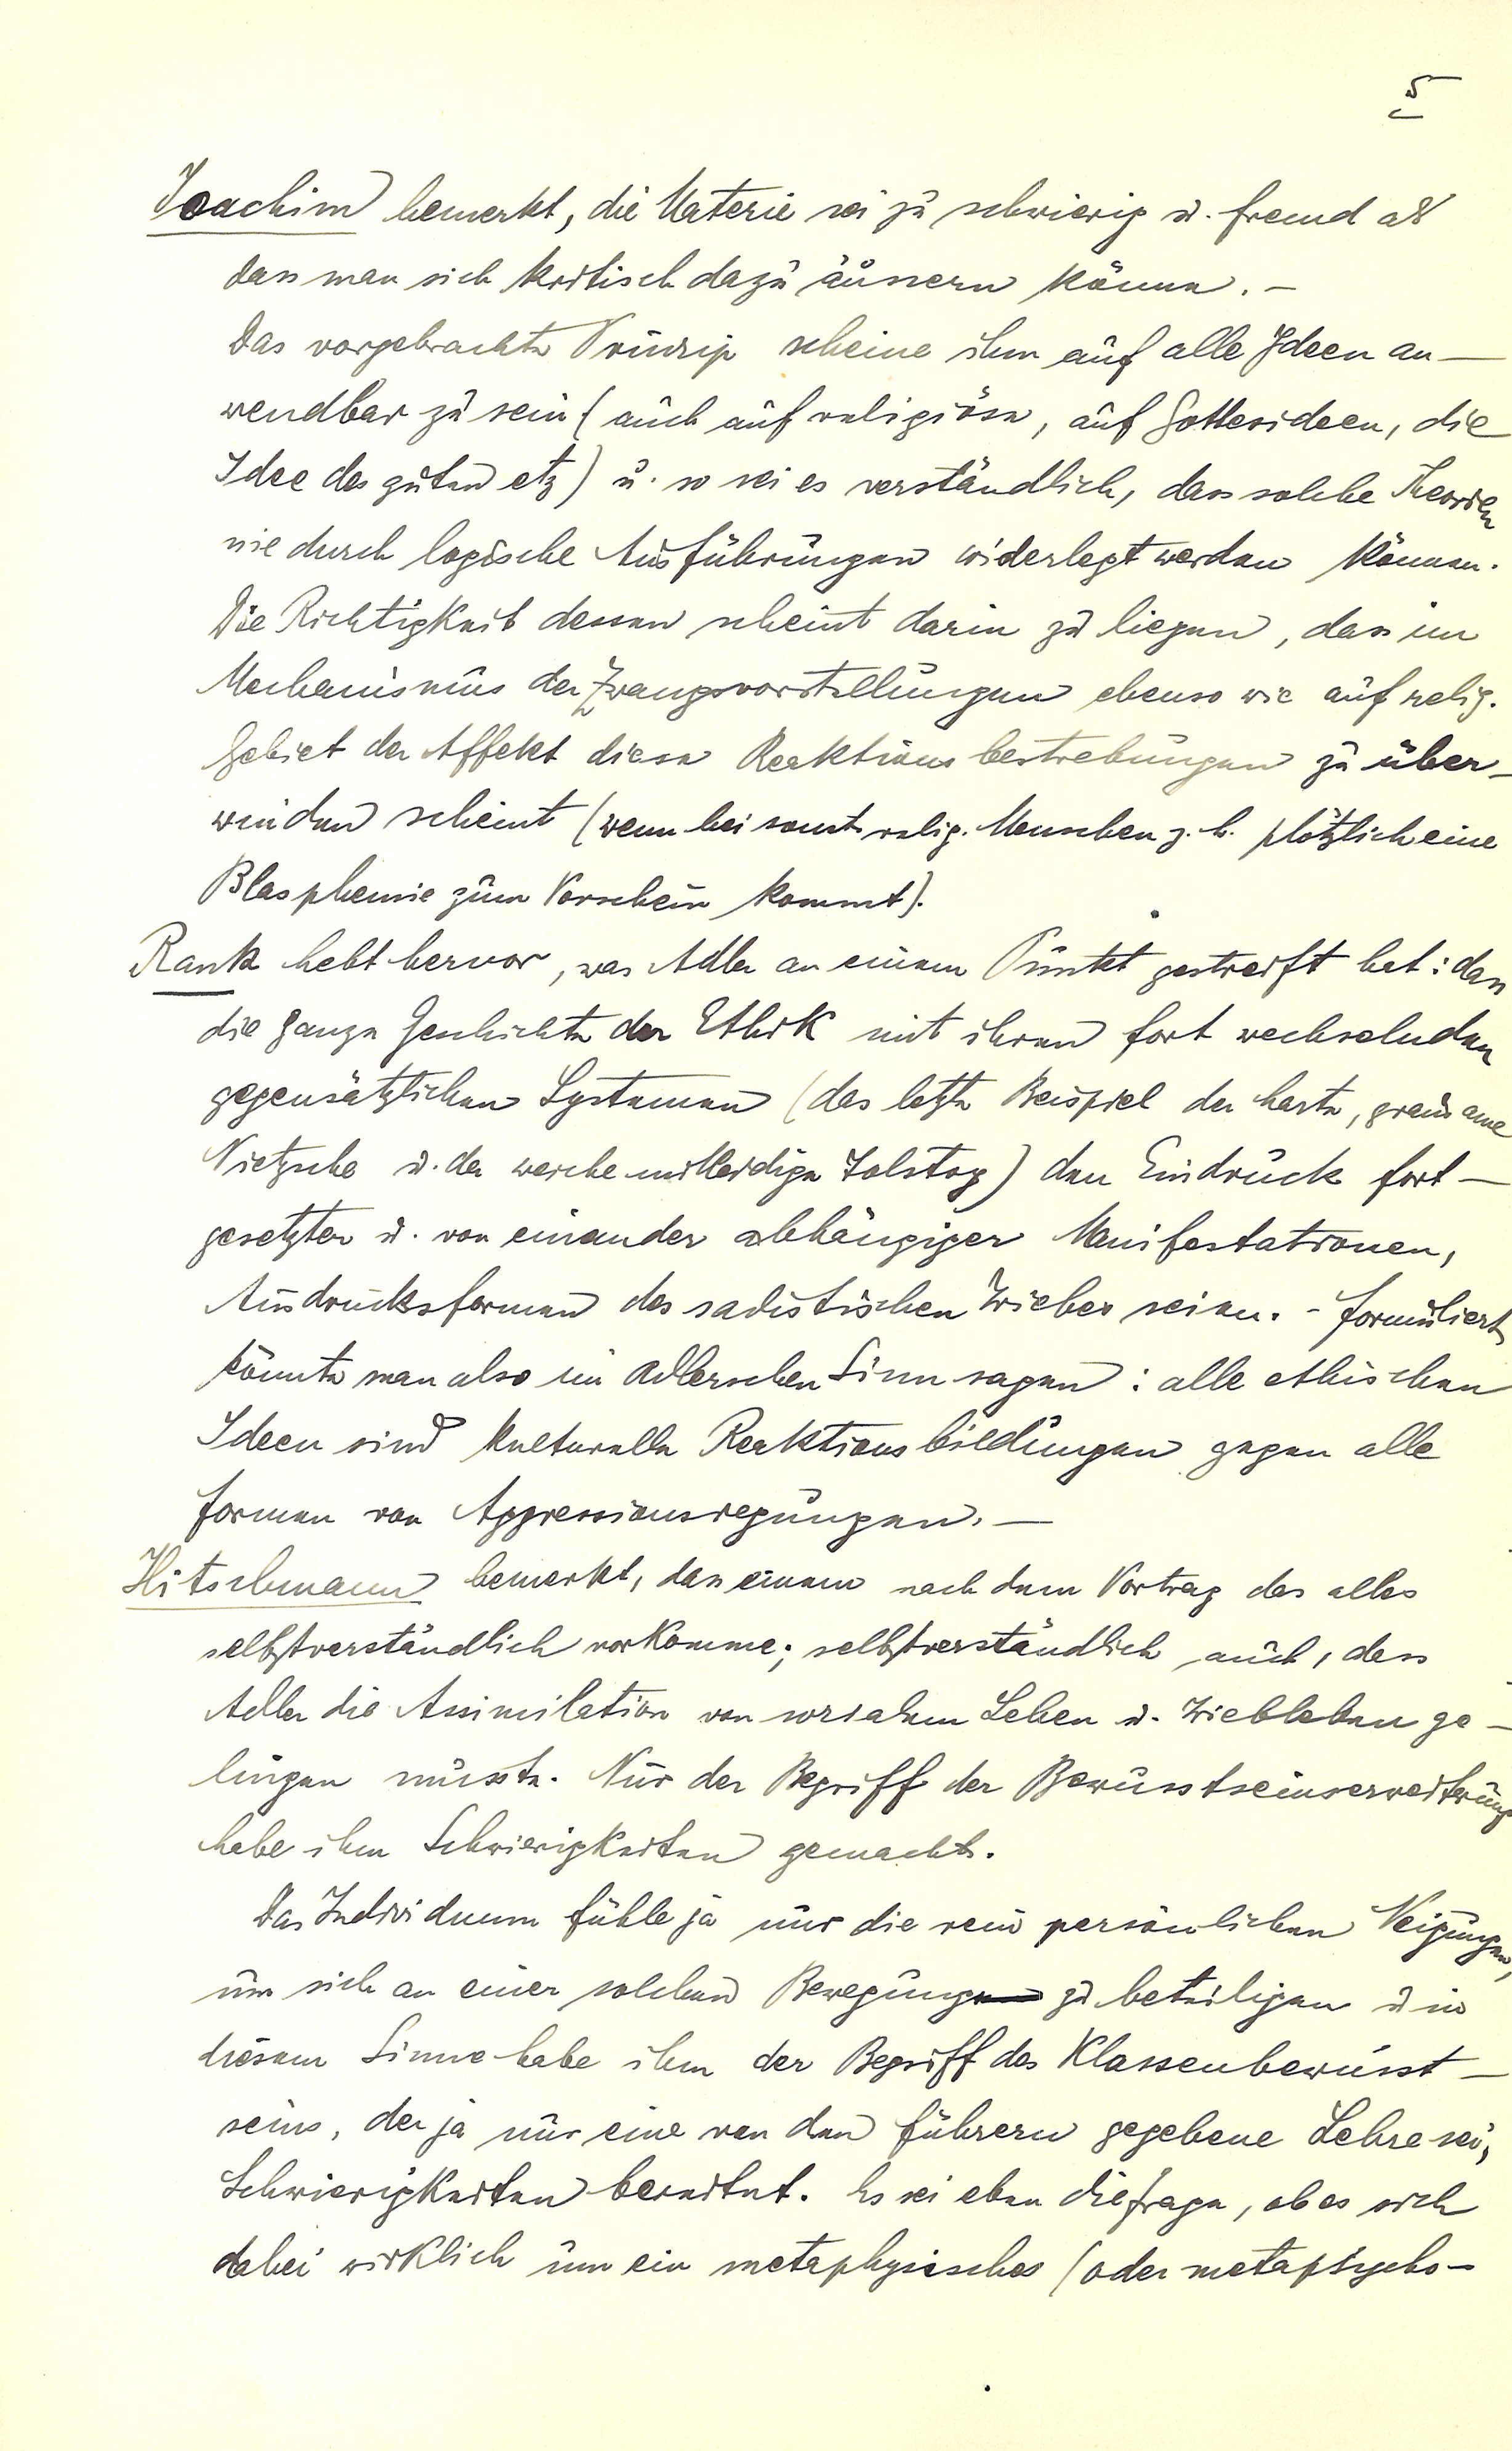 5
Joachim bemerkt, die Materie sei zu schwierig u. fremd als
dass man sich kritisch dazu äussern könne. –
Das vorgebrachte Prinzip scheine ihm auf alle Ideen an–
wendbar zu sein (auch auf religiöse, auf Gottesideen, die
Idee des guten etz) u. so sei es verständlich, dass solche Theorien
nie durch logische Ausführungen widerlegt werden können.
Die Richtigkeit dessen scheint darin zu liegen, dass im
Mechanismus der Zwangsvorstellungen ebenso wie auf relig.
Gebiet der Affekt diese Reaktionsbestrebungen zu über–
winden scheint (wenn bei sonst relig. Menschen z. b. plötzlich eine
Blasphemie zum Vorschein kommt).
Rank hebt hervor, was Adler an einem Punkt gestreift hat: dass
die ganze Geschichte der Ethik mit ihren fort wechselnden
gegensätzlichen Systemen (das letzte Beispiel der harte, grausame
Nietzsche u. der weiche mitleidige Tolstoy) den Eindruck fort–
gesetzter u. von einander abhängiger Manifestationen,
Ausdrucksformen des sadistischen Triebes seien. – formuliert
könnte man also im Adlerschen Sinn sagen: alle ethischen
Ideen sind kulturelle Reaktionsbildungen gegen alle
formen von Aggressionsregungen. –
Hitschmann bemerkt, dass einem nach dem Vortrag das alles
selbstverständlich vorkomme; selbstverständlich auch, dass
Adler die Assimilation von sozialem Leben u. Triebleben ge–
lingen musste. Nur der Begriff der Bewusstseinserweiterung
habe ihm Schwierigkeiten gemacht.
Das Individuum fühle ja nur die rein persönlichen Neigungen,
um sich an einer solchen Bewegung zu beteiligen u in
diesem Sinne habe ihm der Begriff des Klassenbewusst–
seins, der ja nur eine von den führern gegebene Lehre sei,
Schwierigkeiten bereitet. Es sei eben die frage, ob es sich
dabei wirklich um ein metaphysisches (oder metapsycho–